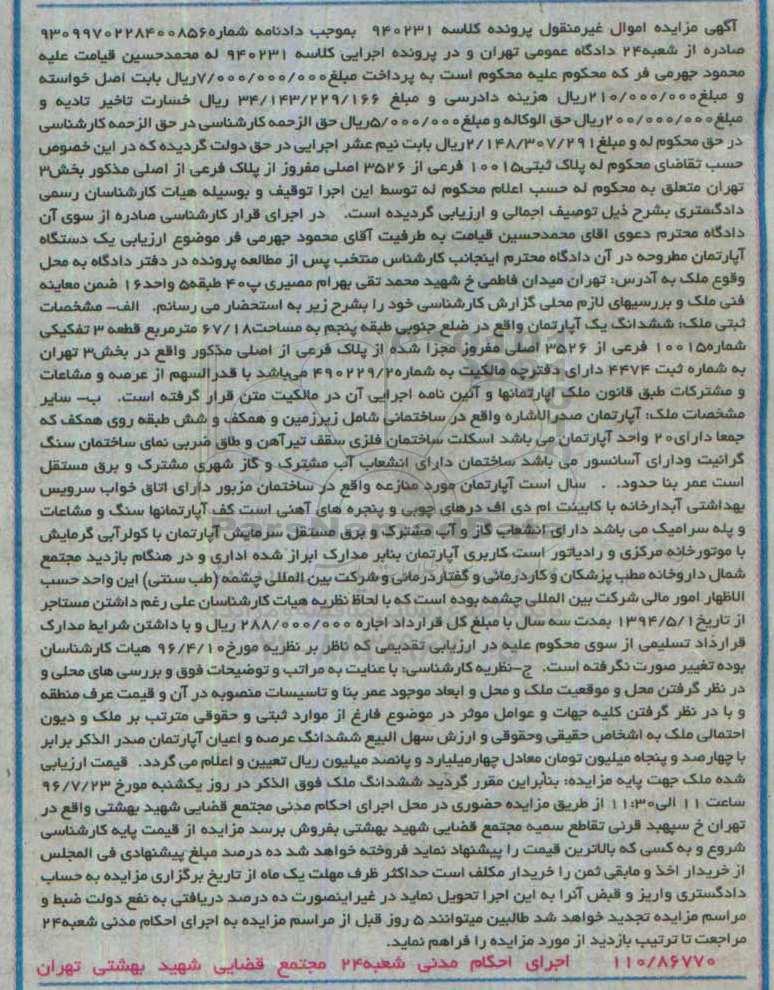 آگهی مزایده اموال غیرمنقول پرونده کلاسه ۹۴۰۲۳۱ بموجب دادنامه شماره۹۳۰۹۹۷۰۲۲۸۴۰۰۸۵۶
صادره از شعبه۲۴ دادگاه عمومی تهران و در پرونده اجرایی کلاسه ۹۴۰۲۳۱ له محمدحسین قیامت علیه
محمود جهرمی فر که محکوم علیه محکوم است به پرداخت مبلغ۷/۰۰۰/۰۰۰/۰۰۰ریال بابت اصل خواسته
و مبلغ۲۱۰/۰۰۰/۰۰۰ریال هزینه دادرسی و مبلغ ۳۴/۱۴۳/۲۲۹/۱۶۶ ریال خسارت تاخیر تادیه و
مبلغ۲۰۰/۰۰۰/۰۰۰ریال حق الوکاله و مبلغ۵/۰۰۰/۰۰۰ریال حق الزحمه کارشناسی در حق الزحمه کارشناسی
در حق محکوم له و مبلغ۲/۱۴۸/۳۰۷/۲۹۱ریال بابت نیم عشر اجرایی در حق دولت گردیده که در این خصوص
حسب تقاضای محکوم له پلاک ثبتی۱۰۰۱۵ فرعی از ۳۵۲۶ اصلی مفروز از پلاک فرعی از اصلی مذکور بخش۳
تهران متعلق به محکوم له حسب اعلام محکوم له توسط این اجرا توقیف و بوسیله هیات کارشناسان رسمی
دادگستری بشرح ذیل توصیف اجمالی و ارزیابی گردیده است. در اجرای قرار کارشناسی صادره از سوی آن
دادگاه محترم دعوی اقای محمدحسین قیامت به طرفیت آقای محمود جهرمی فر موضوع ارزیابی یک دستگاه
آپارتمان مطروحه در آن دادگاه محترم اینجانب کارشناس منتخب پس از مطالعه پرونده در دفتر دادگاه به محل
وقوع ملک به آدرس: تهران میدان فاطمی خ شهید محمد تقی بهرام مصیری پ۴۰ طبقه۵ واحد۱۶ ضمن معاینه
فنی ملک و بررسیهای لازم محلی گزارش کارشناسی خود را بشرح زیر به استحضار می رسانم. الف- مشخصات
ثبتی ملک: ششدانگ یک آپارتمان واقع در ضلع جنوبی طبقه پنجم به مساحت۶۷/۱۸ مترمربع قطعه ۳ تفکیکی
شماره۱۰۰۱۵ فرعی از ۳۵۲۶ اصلی مفروز مجزا شده از پلاک فرعی از اصلی مذکور واقع در بخش۳ تهران
به شماره ثبت ۴۴۷۴ دارای دفترچه مالکیت به شماره۴۹۰۲۲۹/۲ می‌باشد با قدرالسهم از عرصه و مشاعات
و مشترکات طبق قانون ملک آپارتمانها و آئین نامه اجرایی آن در مالکیت متن قرار گرفته است. ب- سایر
مشخصات ملک: آپارتمان صدرالاشاره واقع در ساختمانی شامل زیرزمین و همکف و شش طبقه روی همکف که
جمعا دارای۲۰ واحد آپارتمان می باشد اسکلت ساختمان فلزی سقف تیرآهن و طاق ضربی نمای ساختمان سنگ
گرانیت ودارای آسانسور می باشد ساختمان دارای انشعاب آب مشترک و گاز شهری مشترک و برق مستقل
است عمر بنا حدود. . سال است آپارتمان مورد منازعه واقع در ساختمان مزبور دارای اتاق خواب سرویس
بهداشتی آبدارخانه با کابینت ام دی اف درهای چوبی و پنجره های آهنی است کف آپارتمانها سنگ و مشاعات
و پله سرامیک می باشد دارای انشعاب گاز و آب مشترک و برق مستقل سرمایش آپارتمان با کولرآبی گرمایش
با موتورخانه مرکزی و رادیاتور است کاربری آپارتمان بنابر مدارک ابراز شده اداری و در هنگام بازدید مجتمع
شمال داروخانه مطب پزشکان و کاردرمانی و گفتاردرمانی و شرکت بین المللی چشمه (طب سنتی) این واحد حسب
الاظهار امور مالی شرکت بین المللی چشمه بوده است که با لحاظ نظریه هیات کارشناسان علی رغم داشتن مستاجر
از تاریخ۱۳۹۴/۵/۱ بمدت سه سال با مبلغ کل قرارداد اجاره ۲۸۸/۰۰۰/۰۰۰ ریال و با داشتن شرایط مدارک
قرارداد تسلیمی از سوی محکوم علیه در ارزیابی تقدیمی که ناظر بر نظریه مورخ۹۶/۴/۱۰ هیات کارشناسان
بوده تغییر صورت نگرفته است. ج-نظریه کارشناسی: با عنایت به مراتب و توضیحات فوق و بررسی های محلی و
در نظر گرفتن محل و موقعیت ملک و محل و ابعاد موجود عمر بنا و تاسیسات منصوبه در آن و قیمت عرف منطقه
و با در نظر گرفتن کلیه جهات و عوامل موثر در موضوع فارغ از موارد ثبتی و حقوقی مترتب بر ملک و دیون
احتمالی ملک به اشخاص حقیقی وحقوقی و ارزش سهل البیع ششدانگ عرصه و اعیان آپارتمان صدر الذکر برابر
با چهارصد و پنجاه میلیون تومان معادل چهارمیلیارد و پانصد میلیون ریال تعیین و اعلام می گردد. قیمت ارزیابی
شده ملک جهت پایه مزایده: بنابراین مقرر گردید ششدانگ ملک فوق الذکر در روز یکشنبه مورخ ۹۶/۷/۲۳
ساعت ۱۱ الی۱۱:۳۰ از طریق مزایده حضوری در محل اجرای احکام مدنی مجتمع قضایی شهید بهشتی واقع در
تهران خ سپهبد قرنی تقاطع سمیه مجتمع قضایی شهید بهشتی بفروش برسد مزایده از قیمت پایه کارشناسی
شروع و به کسی که بالاترین قیمت را پیشنهاد نماید فروخته خواهد شد ده درصد مبلغ پیشنهادی فی المجلس
از خریدار اخذ و مابقی ثمن را خریدار مکلف است حداکثر ظرف مهلت یک ماه از تاریخ برگزاری مزایده به حساب
دادگستری واریز و قبض آنرا به این اجرا تحویل نماید در غیراینصورت ده درصد دریافتی به نفع دولت ضبط و
مراسم مزایده تجدید خواهد شد طالبین میتوانند ۵ روز قبل از مراسم مزایده به اجرای احکام مدنی شعبه۲۴
مراجعت تا ترتیب بازدید از مورد مزایده را فراهم نماید.
۱۱۰/۸۶۷۷۰ اجرای احکام مدنی شعبه۲۴ مجتمع قضایی شهید بهشتی تهران